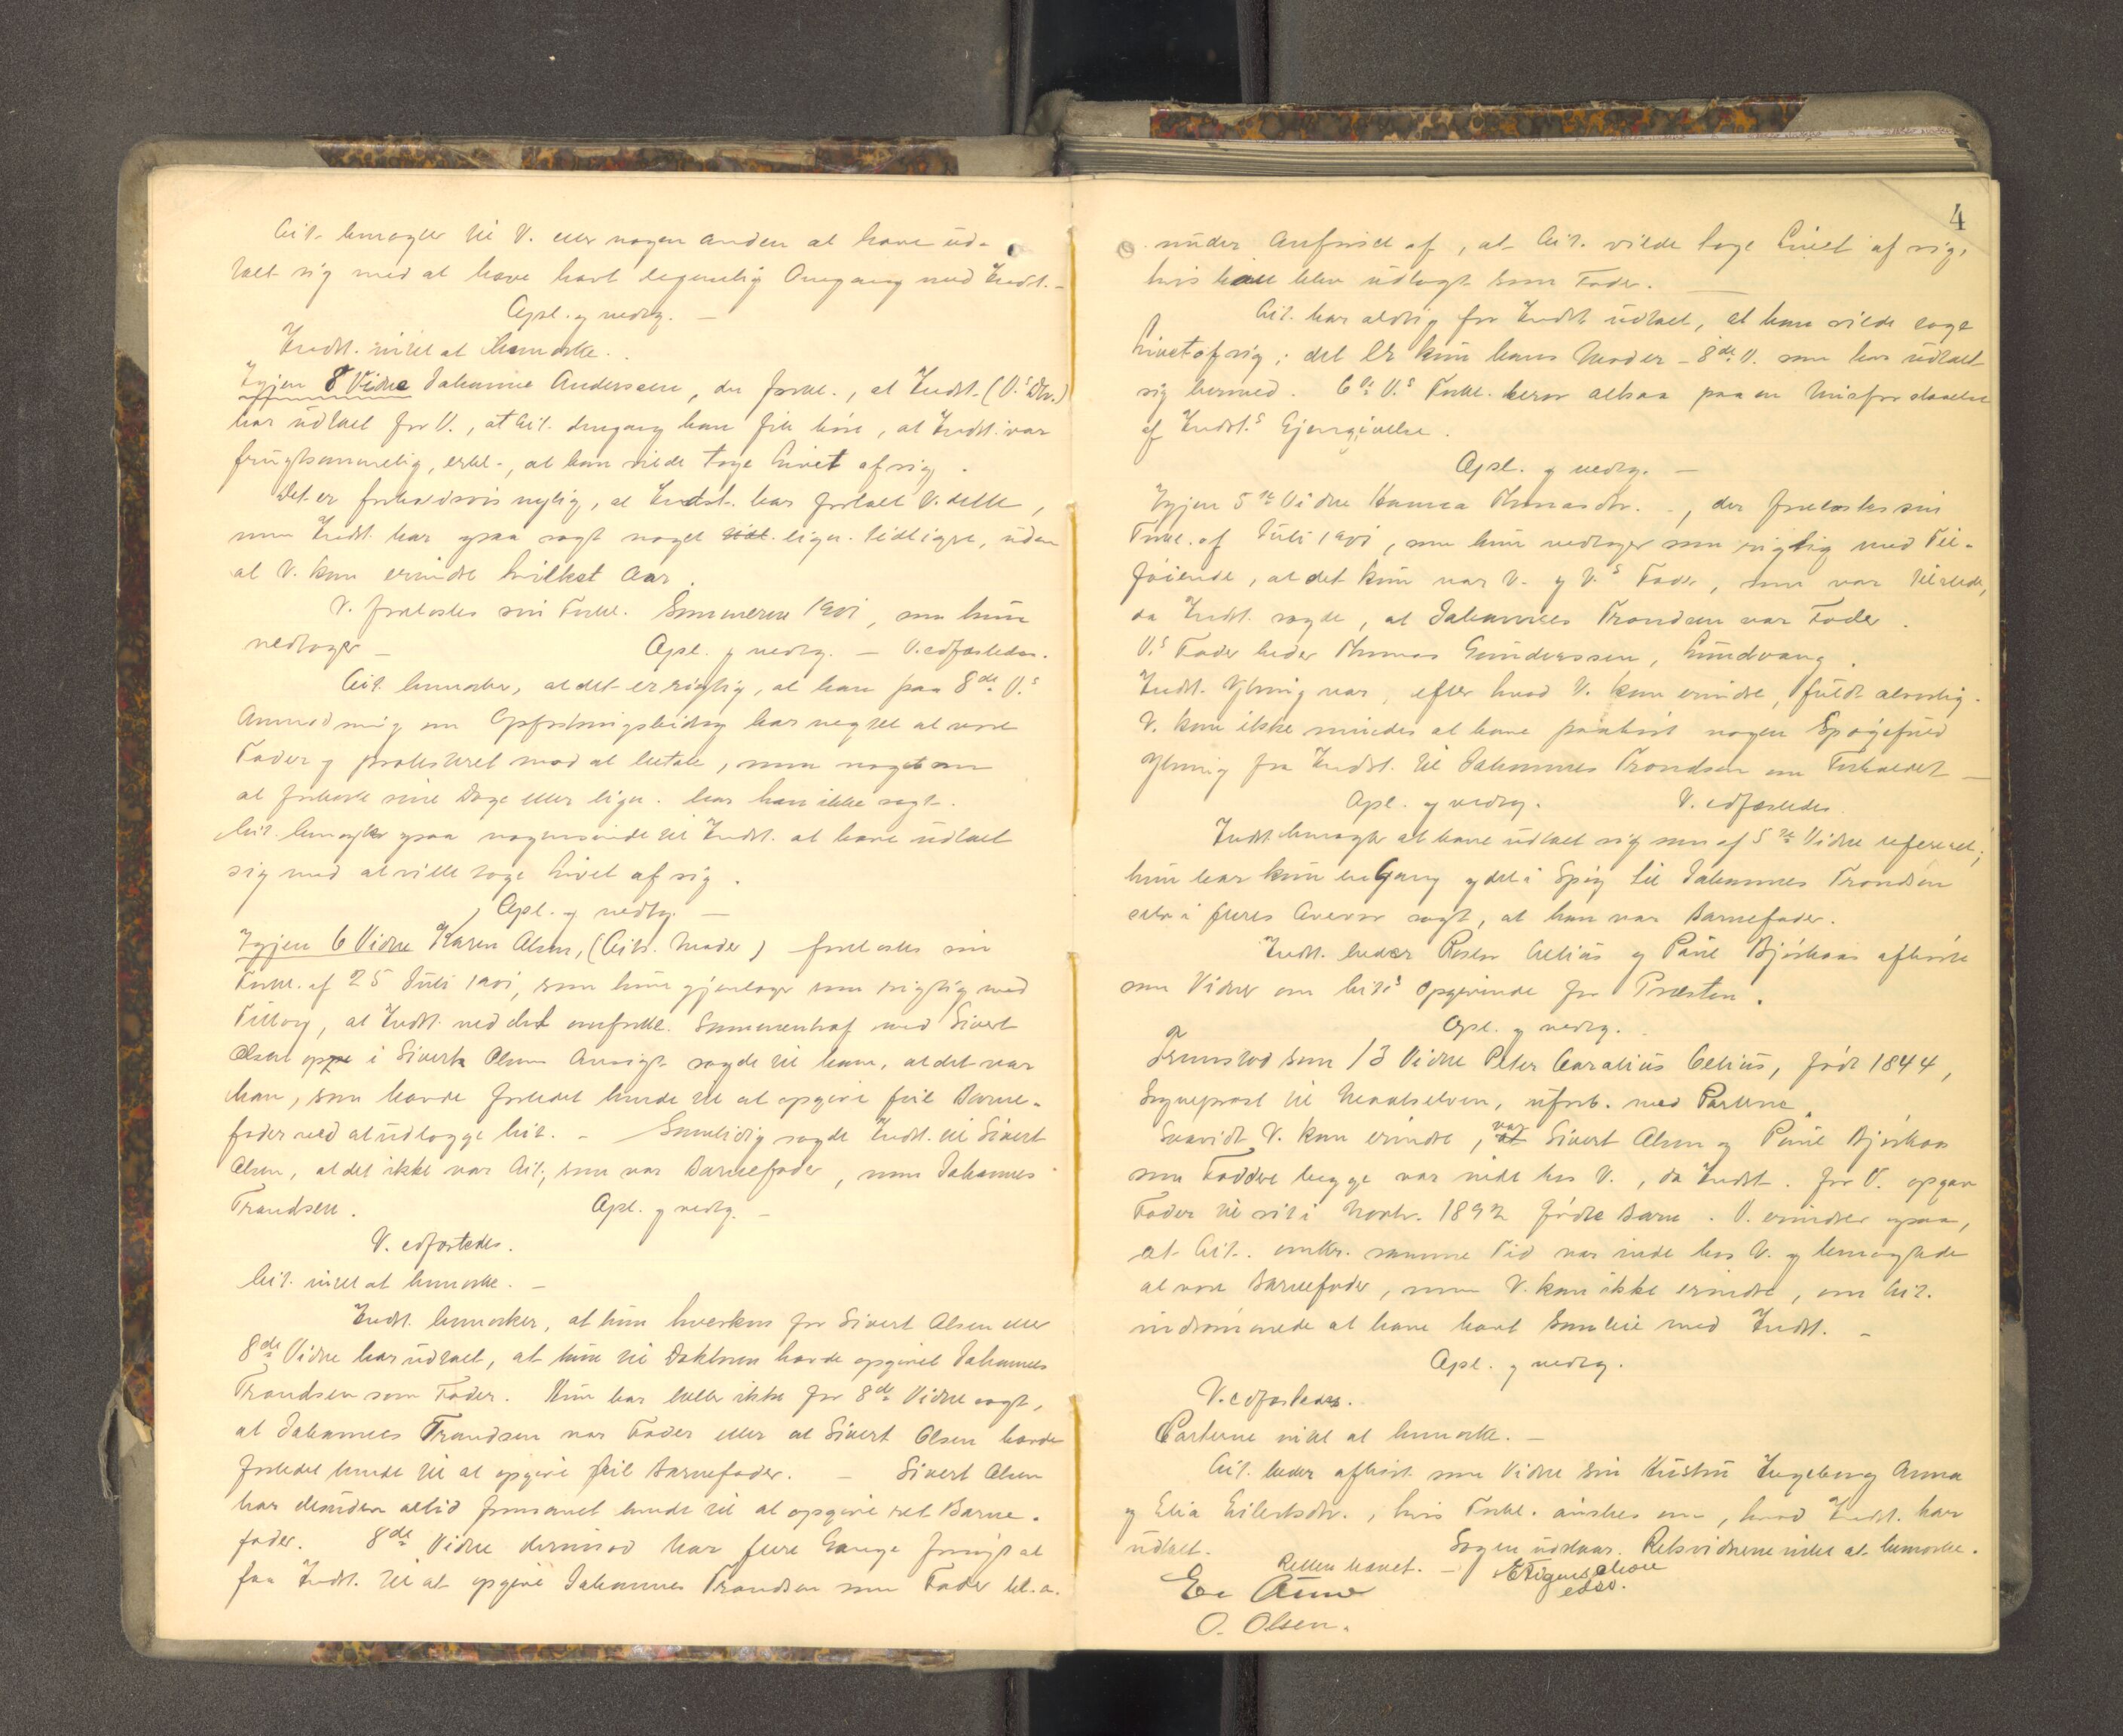 Cit. benægter til V. eller nogen anden at have ud-
talt sig med at have havt legemlig Omgang med Indst. –
Opl. og vedtg. –
Indst. intet at bemærke.
Igjen 8 Vidne Johanne Anderssen, der forkl., at Indst. (V.s Dtr.)
har udtalt for V., at Cit. dengang han fik høre, at Indst. var
frugtsommelig, erkl., at han vilde tage Livet af sig.
Det er forholdsvis nylig, at Indst. har fortalt V. dette,
men Indst. har ogsaa sagt noget lign. tidligere, uden
at V. kan erindre hvilket Aar.
V. forelæstes sin Forkl. Sommeren 1901, som hun
vedtager – Opl. og vedtg. – V. edfæstedes.
Cit. bemærker, at det er rigtig, at han paa 8de V.s
Anmodning om Opfostringsbidrag har negtet at være
Fader og protesteret mod at betale, men noget om
at forkorte sine Dage eller lign. har han ikke sagt.
Cit. benægter ogsaa nogensinde til Indst. at have udtalt
sig med at ville tage Livet af sig.
Opl. og vedtg. –
Igjen 6 Vidne Karen Olsen, (Cits. Moder) forelæstes sin
Forkl. af 25 Juli 1901, som hun gjentager som rigtig med
Tillæg, at Indst. ved det omforkl. Sammentræf med Sivert
Olsen oppe i Sivert Olsens Ansigt sagde til ham, at det var
ham, som havde forledet hende til at opgive feil Barne-
fader ved at udlægge Cit. – Samtidig sagde Indst. til Sivert
Olsen, at det ikke var Cit., som var Barnefader, men Johannes
Trondsen. Opl. og vedtg. –
V. edfæstedes.
Cit. intet at bemærke. –
Indst. bemærker, at hun hverken for Sivert Olsen eller
8de Vidne har udtalt, at hun til Doktoren havde opgivet Johannes
Trondsen som Fader. Hun har heller ikke for 8de Vidne sagt,
at Johannes Trondsen var Fader eller at Sivert Olsen havde
forledet hende til at opgive feil Barnefader. – Sivert Olsen
har desuden altid formanet hende til at opgive ret Barne-
fader. 8de Vidne derimod har flere Gange forsøgt at
faa Indst. til at opgive Johannes Trondsen som Fader bl. a.
4
under Anførsel af, at Cit. vilde tage Livet af sig,
hvis han blev udlagt som Fader. –
Cit. har aldrig for Indst. udtalt, at han vilde tage
Livet af sig; det er kun hans Moder – 8de V. som har udtalt
sig herom. 6te V.s Forkl. beror altsaa paa en Misforstaaelse
af Indst.s Gjengivelse.
Opl. og vedtg. –
Igjen 5te Vidne Hanna Thomasdtr. –, der forelæstes sin
Forkl. af Juli 1901, som hun vedtager som rigtig med Til-
føiende, at det kun var V. og V.s Fader, som var tilstede,
da Indst. sagde, at Johannes Trondsen var Fader.
V.s Fader heder Thomas Gunderssen, Lundvang.
Indst. Ytring var, efter hvad V. kan erindre, fuldt alvorlig.
V. kan ikke mindes at have paahørt nogen spøgefuld
Ytring fra Indst. til Johannes Trondsen om Forholdet –
Opl. og vedtg. V. edfæstedes.
Indst. benægter at have udtalt sig som af 5te Vidne refereret;
hun har kun en Gang og det i Spøg til Johannes Trondsen
selv i fleres Overvær sagt, at han var Barnefader.
Indst. beder Pastor Celius og Paul Bjørkaas afhørte
som Vidner om Cit.s Opgivende for Præsten.
Opl. og vedtg.
Fremstod som 13 Vidne Peter Caralius Celius, født 1844,
Sogneprest til Maalselven, uforb. med Parterne.
Saavidt V. kan erindre, var Sivert Olsen og Paul Bjørkaas
som Faddere begge var inde hos V., da Indst. for V. opgav
Fader til sit i Novbr. 1892 fødte Barn. V. erindrer ogsaa,
at Cit. omtr. samme Tid var inde hos V. og benægtede
at være Barnefader, men V. kan ikke erindre, om Cit.
indrømmede at have havt Samleie med Indst. –
Opl. og vedtg.
V. edfæstedes.
Parterne intet at bemærke. –
Cit. beder afhørt som Vidne sin Hustru Ingeborg Anna
og Elia Eilertsdtr., hvis Forkl. ønskes om, hvad Indst. har
udtalt. Sagen udstaar. Retsvidnerne intet at bemærke.
Retten hævet. –
O. Olsen.